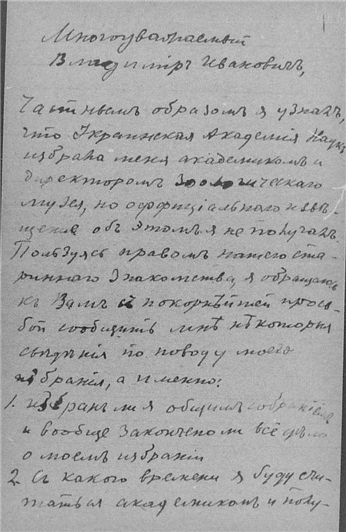 Многоуважаемый
Владимiръ Ивановичъ,
Частнымъ образомъ я узналъ,
что Украинская Академiя Наукъ
избрала меня академикомъ и
директоромъ Зоологическаго
музея, но оффицiальнаго извѣ-
щенiя объ этомъ я не получалъ.
Пользуясь правомъ нашего ста-
риннаго знакомства, я обращаюсь
къ Вамъ съ покорнѣйшей прось-
бой сообщить мнѣ нѣкоторыя
свѣдѣнiя по поводу моего
избранiя, а именно:
1. избранъ ли я общимъ собранiемъ
и вообще закончено ли всё дѣло
о моемъ избранiи
2. Съ какого времени я буду счи-
таться академикомъ и полу-